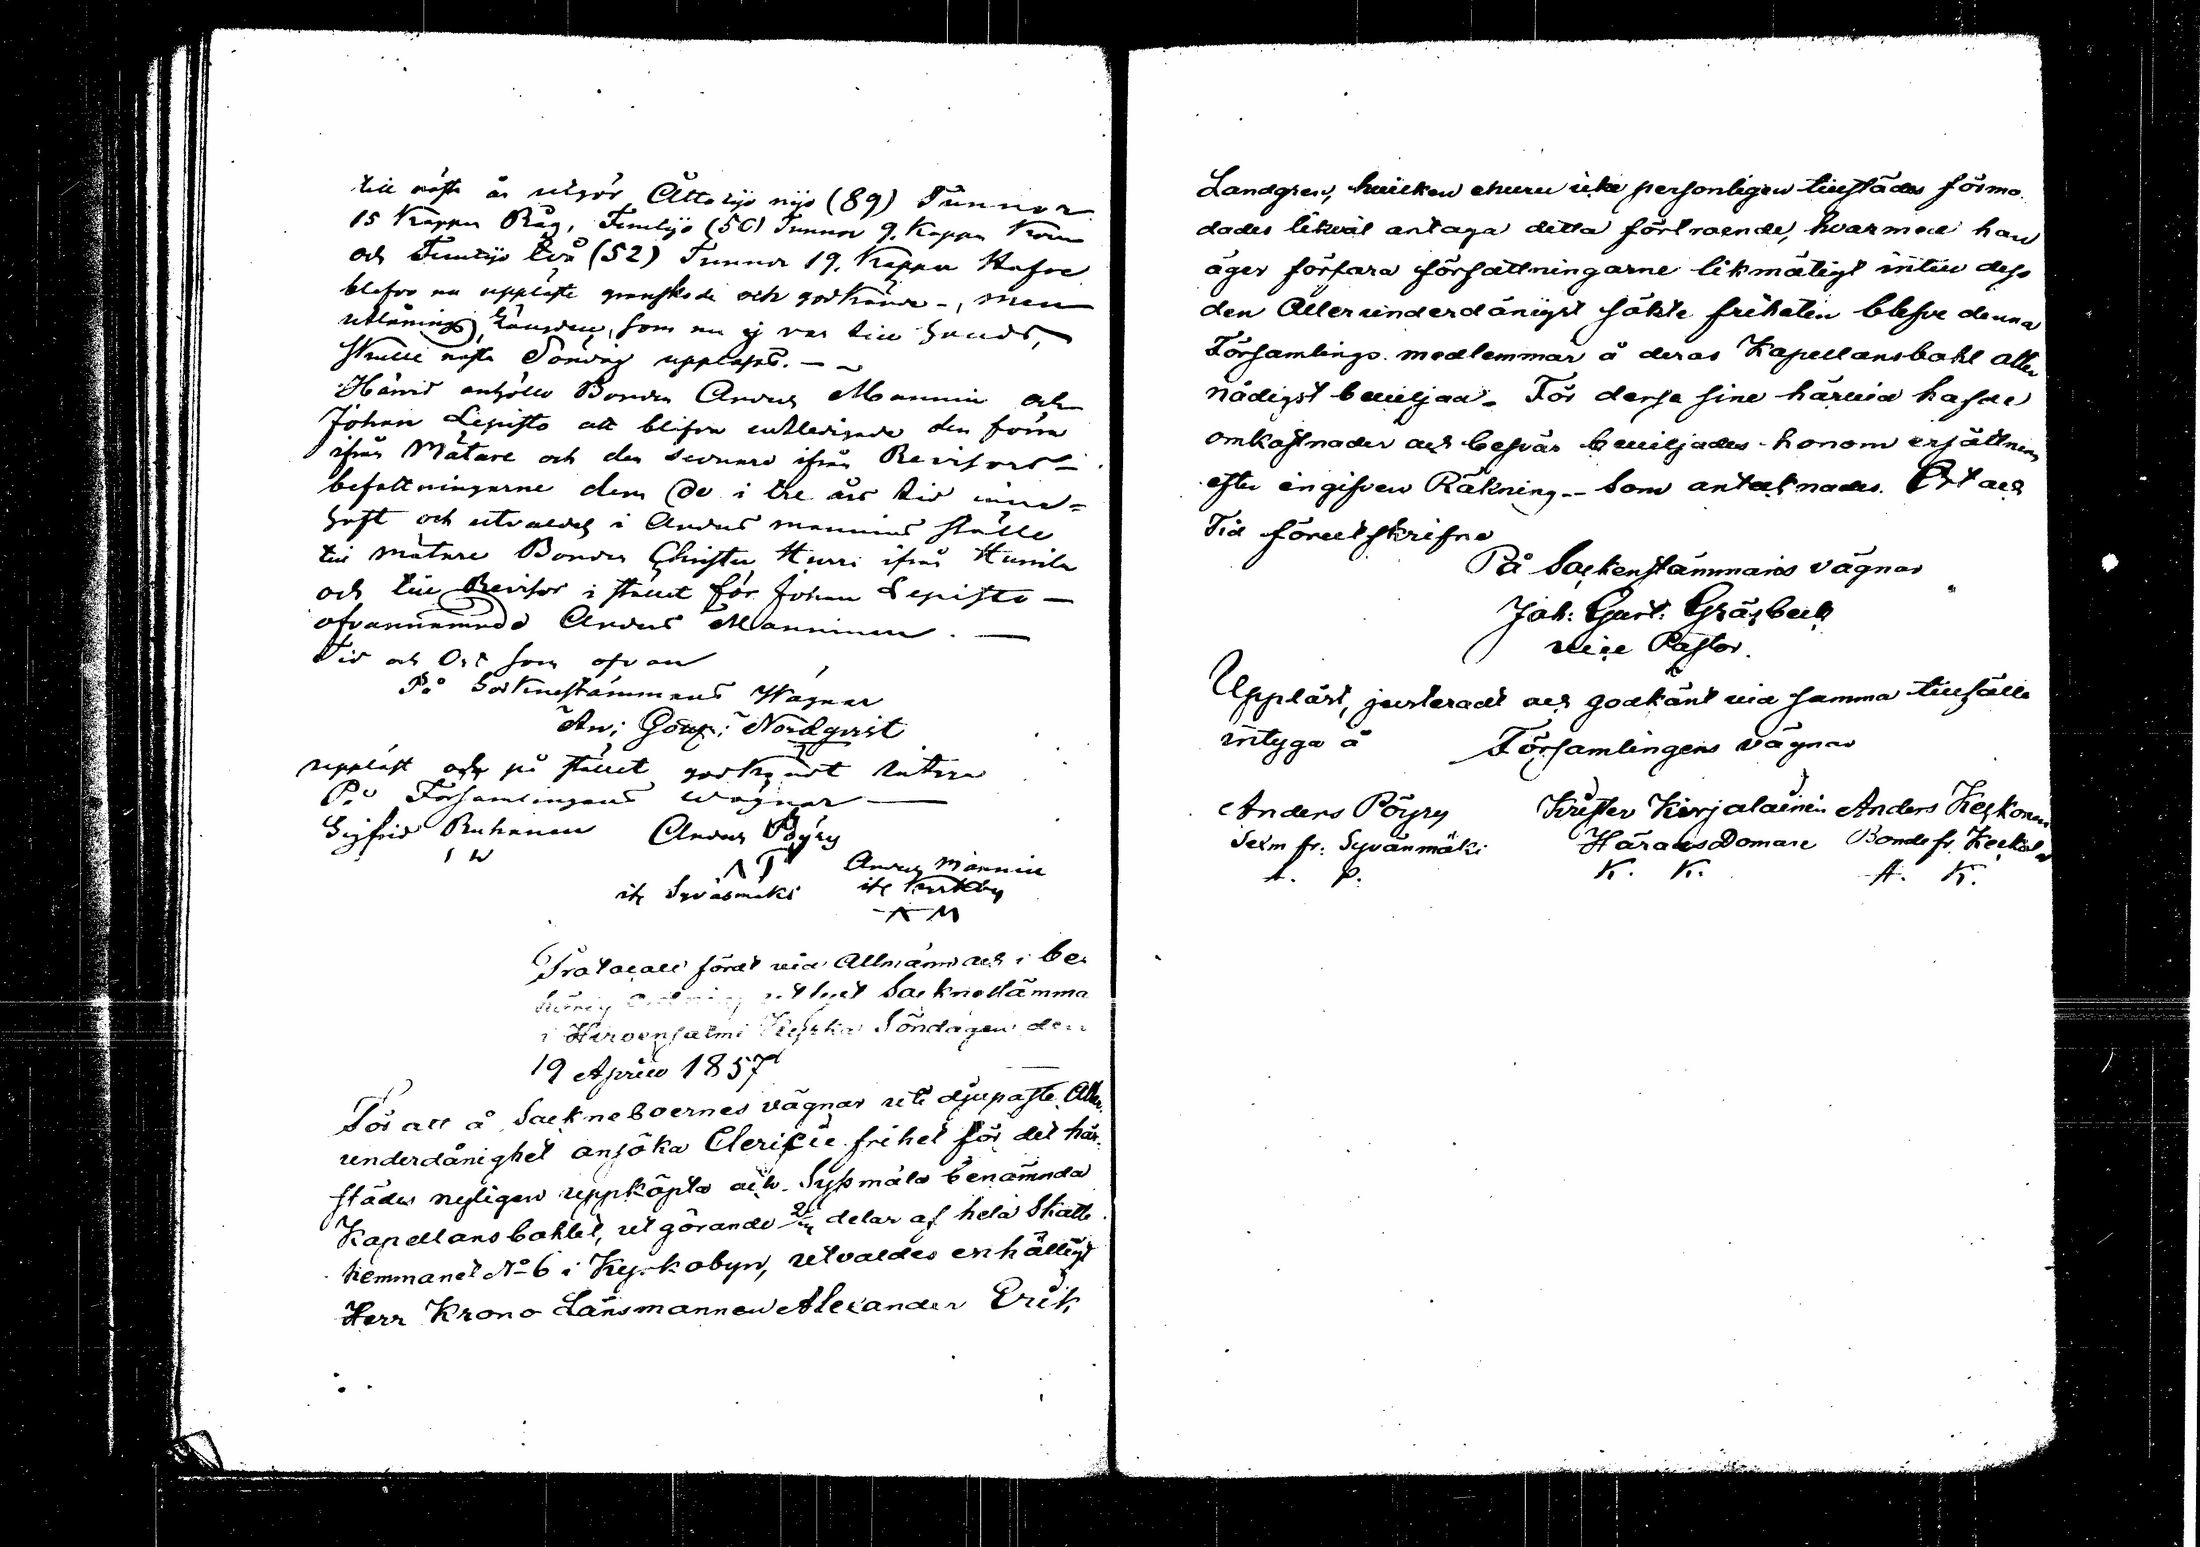 till nästa år utgör Åttotijo nijo (89) Tunnor
15 Kappar Råg, Femtijo (50) Tunnor 9. Kappar Korn
och Femtijo två (52) Tunnor 19. Kappar Hafre
blefvo nu uppläste granskade och godkände -, men
utlånings Längden, som nu ej var till hands,
skulle nästa Söndag uppläsas. - -
Härvid anhöllo Bonden Anders Mannin och
Johan Lepistö att blifva entledigade den förra
ifrån Mätare och den sednare ifrån Revisors-
befattningarne dem de i tre års tid inne-
haft och utvaldes i Anders Mannins ställe
till mätare Bonden Christer Hurri ifrån Hurrila
och till Revisor i stället för Johan Lepistö -
ofvannämnde Anders Manninen. -
Tid och Ort som ofvan
På Socknestämmans Wägnar
An: Gour: Nordqvist
uppläst och på stället godkändt intyga
På Församlingens wägnar -
Sigfrid Ruhanen Anders Pöyry
Anders Mannin
if Syväsmäki if Kyrkoby
A M
Protocoll fördt vid Allmänn och i be-
hörig ordning utlyst Socknestämma
i Hirvensalmi Kyrka Söndagen den
19 April 1857
För att å Sockneboernes vägnar uti djupaste Aller-
underdånighet ansöka Clericie frihet för det här-
städes nyligen uppköpta och Sysmälä benämnda
Kapellansbohlet, utgörande delar af hela Skatte
hemmanet No 6 i Kyrkobyn, utvaldes enhälligt
Herr Krono Länsmannen Alexander Erik
Landgren, hvilken ehuru icke personligen tillstädes förmo-
dades likväl antaga detta förtroende, hvarmed han
äger förfara författningarne likmätigt intill dess
den Allerunderdånigst sökte friheten blefve denna
Församlings medlemmar å deras Kapellansbohl aller
nådigst beviljad. För dessa sine härvid hafde
omkostnader och besvär beviljades honom ersättning
efter ingifven Räkning -- Som antecknades. Ort och
Tid förutskrifne
På Sockenstämmans vägnar
Joh: Gust: Gråsbeck
vice Pastor.
Uppläst, justeradt och godkänt vid samma tillfälle
intyga å Församlingens vägnar
Anders Pöyry Krister Kirjalainen Anders Keskonen
Sexm fr: Syvänmäki HäradsDomare Bonde fr.
A. P. K. K. A. K.